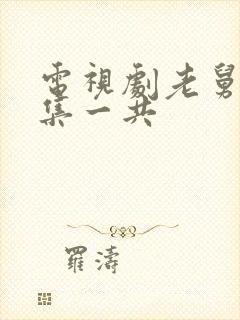 電視劇老舅
集一共
羅濤